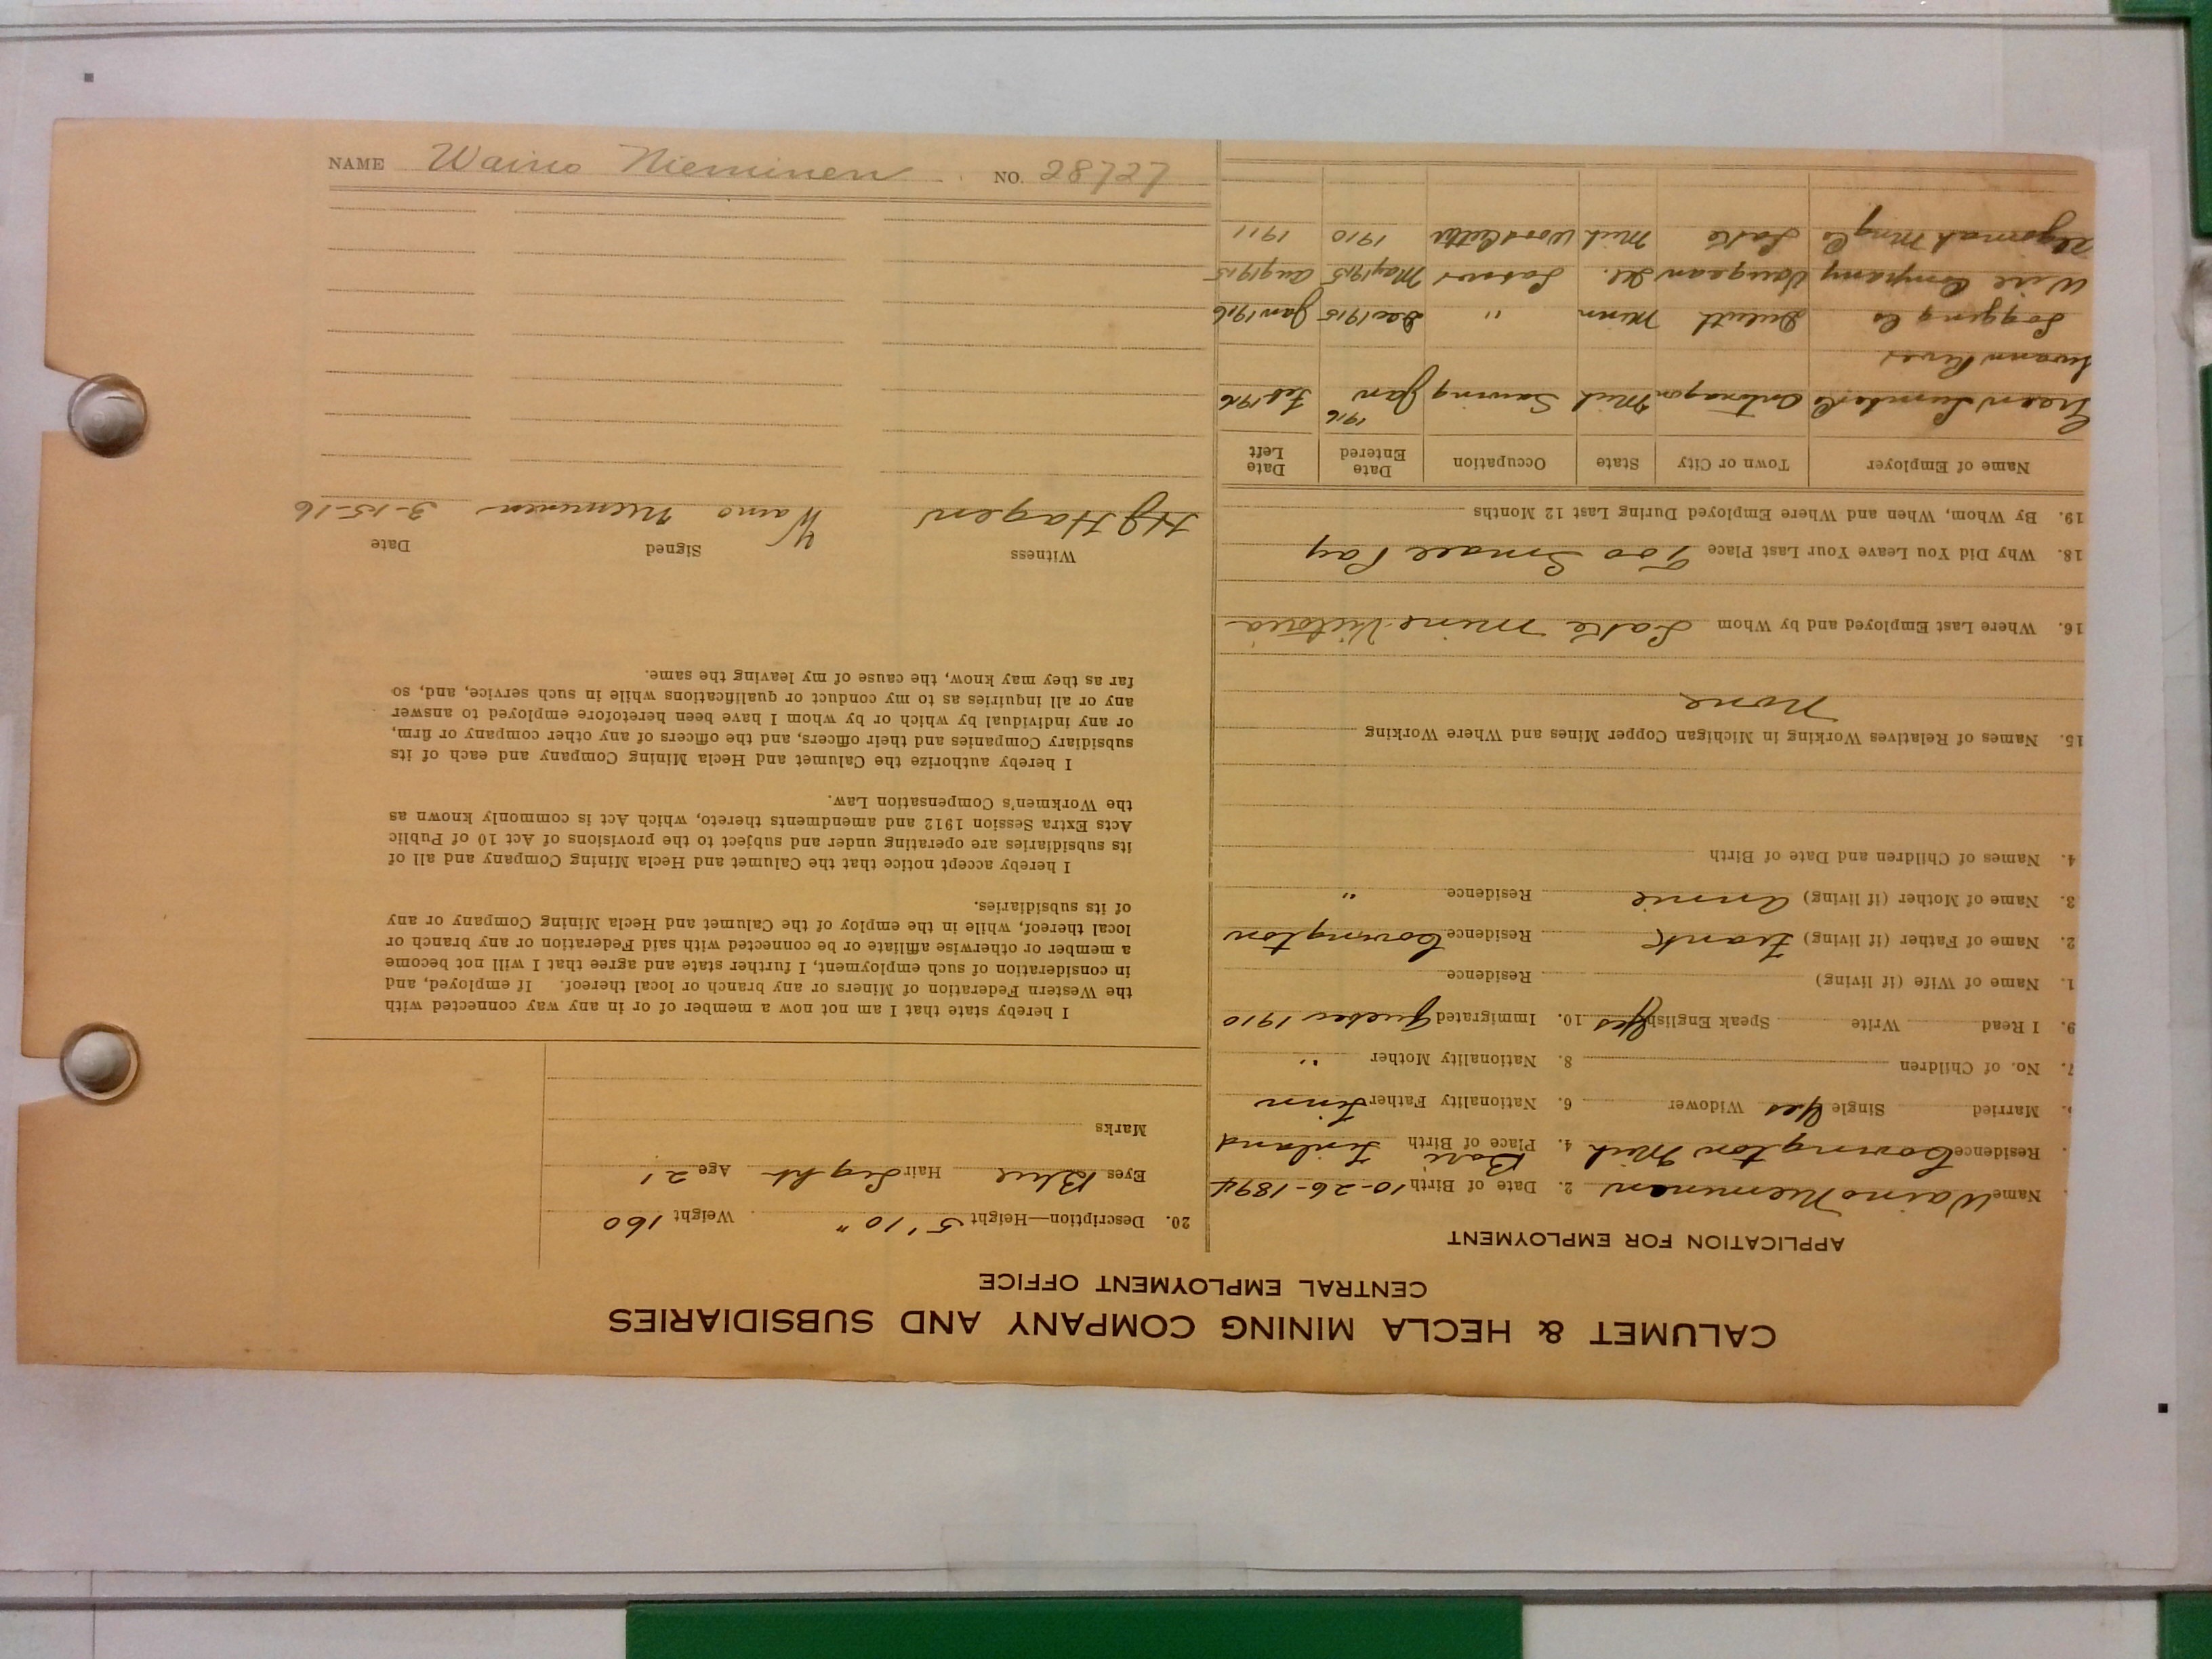 CALUMET & HECLA MINING COMPANY AND SUBSIDIARIES
CENTRAL EMPLOYMENT OFFICE
APPLICATION FOR EMPLOYMENT
Name Waino Nieminen 2. Date of Birth 10-26-1894
Residence Covington Mich 4. Place of Birth Finland
Married Single Yes Widower 6. Nationality Father Finn
7. No. of Children 8. Nationality Mother "
9. I Read Write Speak English Yes 10. Immigrated Quebec 1910
1. Name of Wife (if living) Residence
2. Name of Father (if living) Frank Residence Covington
3. Name of Mother (if living) Annie Residence "
4. Names of Children and Date of Birth
15. Names of Relatives Working in Michigan Copper Mines and Where Working
None
16. Where Last Employed and by Whom Lake Mine Victoria
18. Why Did You Leave Your Last Place Too Small Pay
19. By Whom, When and Where Employed During Last 12 Months
Name of Employer Town or City State Occupation Date Entered Date Left
Lumber Co Ontonagon Mich Sawing Jan 1916 Feb 1916
River
Logging Co Duluth Minn " Dec 1915 Jan 1916
Wire Company Waugean Ill. Labor May 1915 Aug 1915
Algomah Mng Co Lake Mich 1910 1911
20. Description—Height 5' 10" Weight 160
Eyes Blue Hair Light Age 21
Marks
I hereby state that I am not now a member of or in any way connected with
the Western Federation of Miners or any branch or local thereof. If employed, and
in consideration of such employment, I further state and agree that I will not become
a member or otherwise affiliate or be connected with said Federation or any branch or
local thereof, while in the employ of the Calumet and Hecla Mining Company or any
of its subsidiaries.
I hereby accept notice that the Calumet and Hecla Mining Company and all of
its subsidiaries are operating under and subject to the provisions of Act 10 of Public
Acts Extra Session 1912 and amendments thereto, which Act is commonly known as
the Workmen's Compensation Law.
I hereby authorize the Calumet and Hecla Mining Company and each of its
subsidiary Companies and their officers, and the officers of any other company or firm,
or any individual by which or by whom I have been heretofore employed to answer
any or all inquiries as to my conduct or qualifications while in such service, and, so
far as they may know, the cause of my leaving the same.
Witness Signed Date
HJ Hagen Waino Nieminen 3-15-16
NAME Waino Nieminen NO. 28727